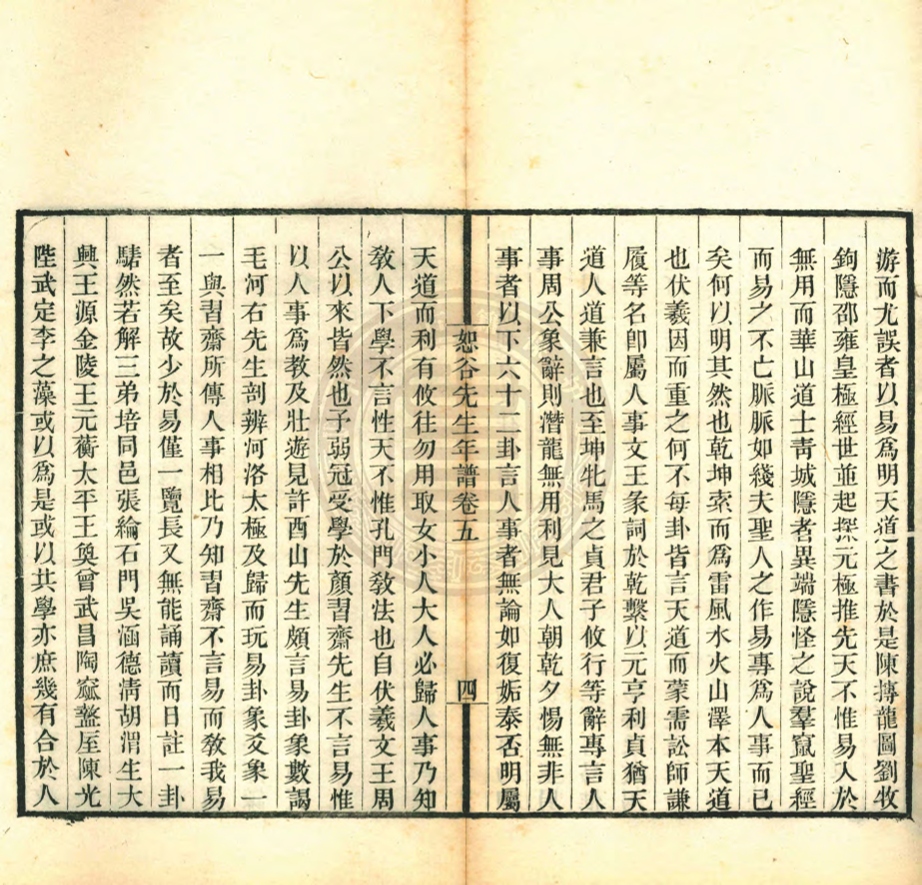 游而尤誤者以易爲明天道之書於是陳摶龍圖劉牧
鉤隱邵雍皇極經世並起探元極推先天不惟易入於
無用而華山道士靑城隱者異端隱怪之說羣竄聖經
而易之不亡脈脈如綫夫聖人之作易專爲人事而已
矣何以明其然也乾坤索而爲雷風水火山澤本天道
也伏羲因而重之何不每卦皆言天道而蒙需訟師謙
履等名卽屬人事文王彖詞於乾繫以元亨利貞猶天
道人道兼言也至坤牝馬之貞君子攸行等辭專言人
事周公象辭則潛龍無用利見大人朝乾夕惕無非人
事者以下六十二卦言人事者無論如復姤泰否明屬
恕谷先生年譜卷五 四
天道而利有攸往勿用取女小人大人必歸人事乃知
敎人下學不言性天不惟孔門敎法也自伏羲文王周
公以來皆然也子弱冠受學於顏習齋先生不言易惟
以人事爲敎及壯遊見許酉山先生頗言易卦象數謁
毛河右先生剖辨河洛太極及歸而玩易卦象爻象一
一與習齋所傳人事相比乃知習齋不言易而敎我易
者至矣故少於易僅一覽長又無能誦讀而日註一卦
騞然若解三弟培同邑張綸石門吳涵德淸胡渭生大
興王源金陵王元蘅太平王奐曾武昌陶窳盩厔陳光
陛武定李之藻或以爲是或以共學亦庶幾有合於人